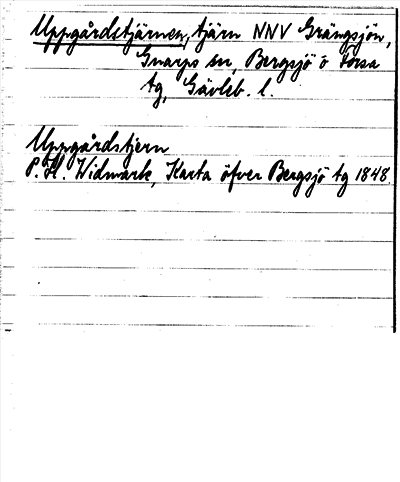 Uppgårdstjärnen, tjärn NNV Grängsjön,
Gnarps sn, Bergsjö o Forsa
tg, Gävleb. l.
Uppgårdstjern
P. H. Widmark, Karta öfver Bergsjö tg 1848.